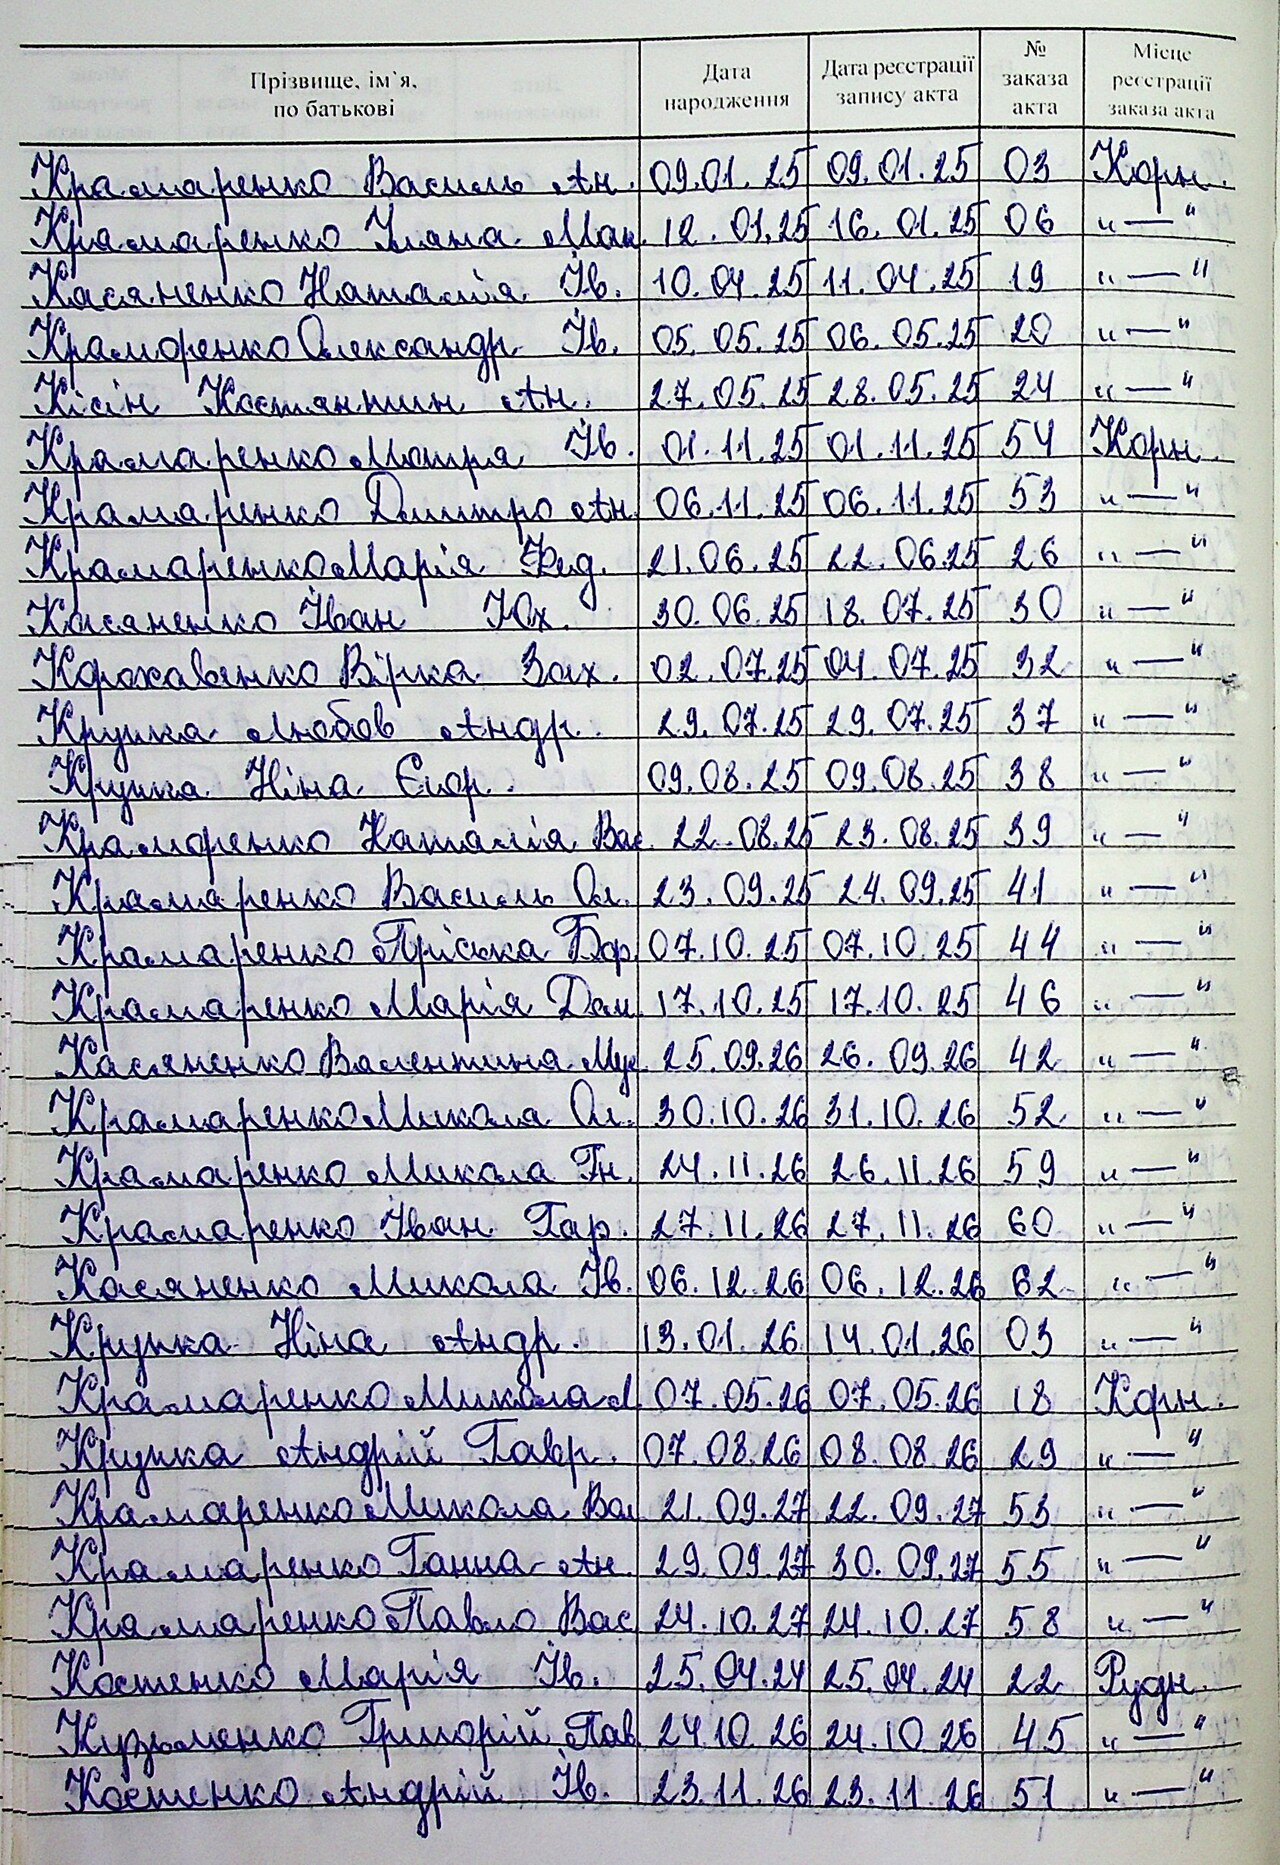 Прізвище, ім`я, по батькові | Дата народження | Дата реєстрації запису акта | № заказа акта | Місце реєстрації заказа акта
Крамаренко Василь Ан. 09.01.25 09.01.25 03 Корн.
Крамаренко Уляна Ман. 12.01.25 16.01.25 06 „—"
Касяненко Наталія Ів. 10.04.25 11.04.25 19 „—"
Крамаренко Олександр Ів. 05.05.25 06.05.25 20 „—"
Кісін Костянтин Ан. 27.05.25 28.05.25 24 „—"
Крамаренко Мотря Ів. 01.11.25 01.11.25 54 Корн.
Крамаренко Дмитро Ан. 06.11.25 06.11.25 53 „—"
Крамаренко Марія Фед. 21.06.25 22.06.25 26 „—"
Касяненко Іван Юх. 30.06.25 18.07.25 30 „—"
Вірка Зах. 02.07.25 04.07.25 32 „—"
Крупка Любов Андр. 29.07.25 29.07.25 37 „—"
Крупка Ніна Єгор. 09.08.25 09.08.25 38 „—"
Крамаренко Наталія Вас. 22.08.25 23.08.25 39 „—"
Крамаренко Василь Ол. 23.09.25 24.09.25 41 „—"
Крамаренко Пріська 07.10.25 07.10.25 44 „—"
Крамаренко Марія Дем. 17.10.25 17.10.25 46 „—"
Касяненко Валентина 25.09.26 26.09.26 42 „—"
Крамаренко Микола Ол. 30.10.26 31.10.26 52 „—"
Крамаренко Микола Гн. 24.11.26 26.11.26 59 „—"
Крамаренко Іван Гар. 27.11.26 27.11.26 60 „—"
Касяненко Микола Ів. 06.12.26 06.12.26 62 „—"
Крупка Ніна Андр. 13.01.26 14.01.26 03 „—"
Крамаренко Микола 07.05.26 07.05.26 18 Корн.
Крупка Андрій Гавр. 07.08.26 08.08.26 29 „—"
Крамаренко Микола 21.09.27 22.09.27 53 „—"
Крамаренко Ганна Ан. 29.09.27 30.09.27 55 „—"
Крамаренко Павло Вас 24.10.27 24.10.27 58 „—"
Костенко Марія Ів. 25.04.24 25.04.24 22 Рудн.
Кузьменко Григорій Пав 24.10.26 24.10.26 45 „—"
Костенко Андрій Ів. 23.11.26 23.11.26 51 „—"